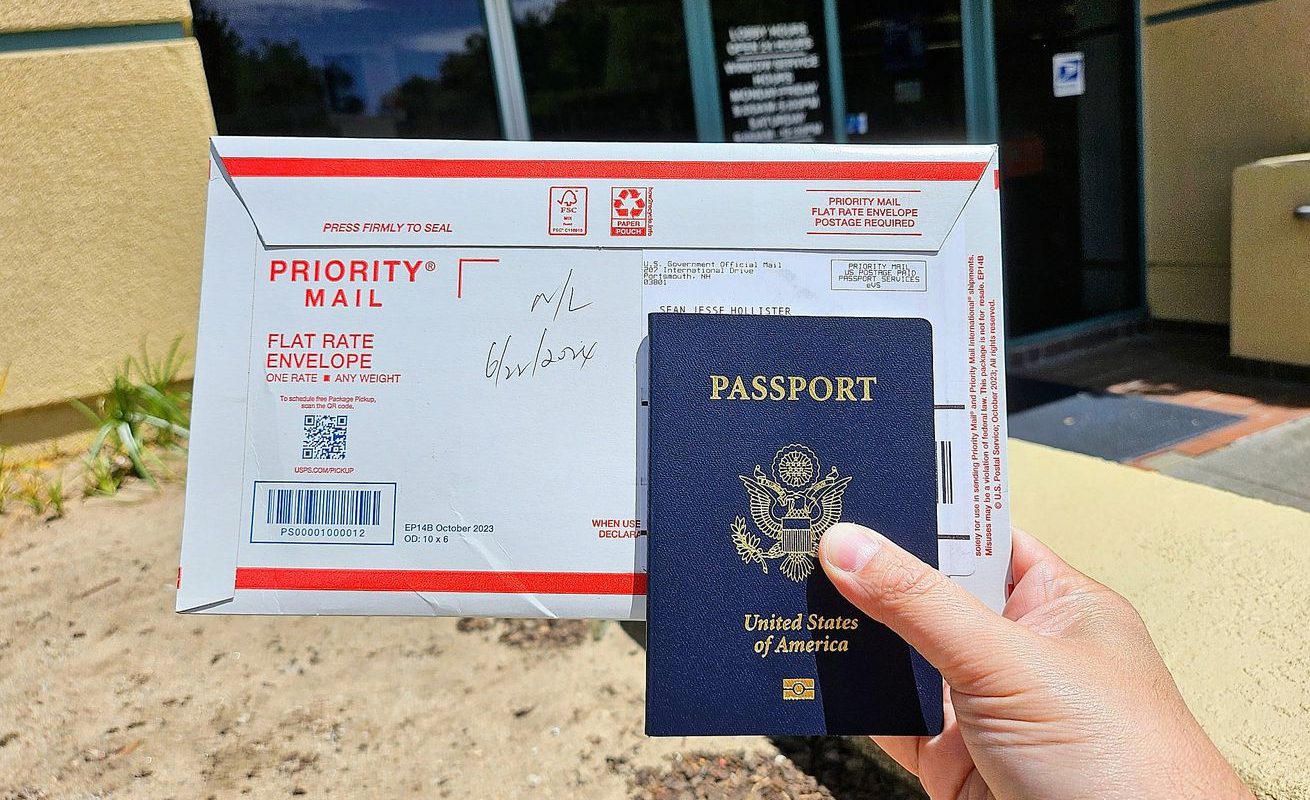 LOBBY HOURS
OPEN 24 HOURS
WINDOW SERVICE
HOURS
MONDAY-FRIDAY
SATURDAY
PRESS FIRMLY TO SEAL
FSC
MIX
PAPER
POUCH
how2recycle.info
PRIORITY MAIL
FLAT RATE ENVELOPE
POSTAGE REQUIRED
PRIORITY®
MAIL
FLAT RATE
ENVELOPE
ONE RATE ■ ANY WEIGHT
To schedule free Package Pickup,
scan the QR code.
USPS.COM/PICKUP
PS00001000012
EP14B October 2023
OD: 10 x 6
N/L
6/22/2024
U.S. Government Official Mail
207 International Drive
Portsmouth, NH
03801
PRIORITY MAIL
US POSTAGE PAID
PASSPORT SERVICES
eVS
SEAN JESSE HOLLISTER
WHEN USE
DECLARA
solely for use in sending Priority Mail® and Priority Mail International® shipments.
Misuses may be a violation of federal law. This package is not for resale. EP14B
© U.S. Postal Service; October 2023; All rights reserved.
PASSPORT
United States
of America